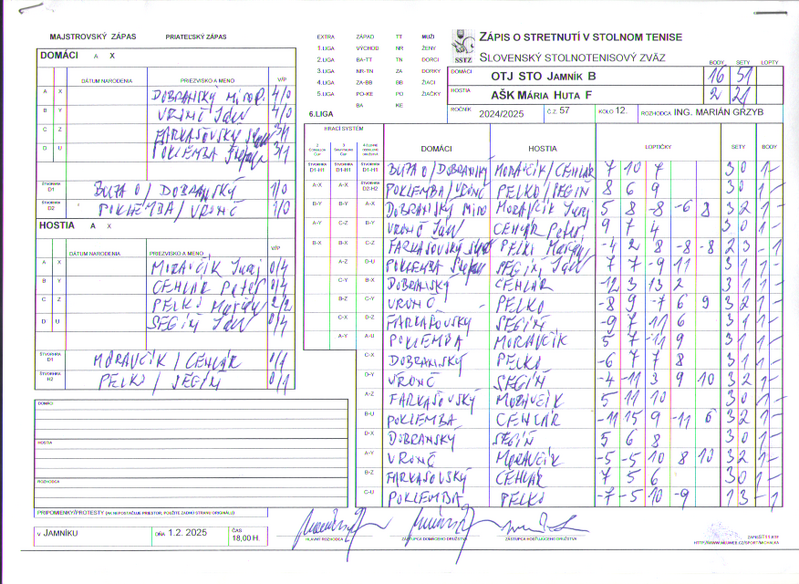 MAJSTROVSKÝ ZÁPAS PRIATEĽSKÝ ZÁPAS
DOMÁCI A X
DÁTUM NARODENIA PRIEZVISKO A MENO V/P
A X DOBRANSKÝ MIRO P. 4/0
B Y VRONČ JÁN 4/0
C Z FARKAŠOVSKÝ 3/1
D U POKLEMBA 3/1
ŠTVORHRA D1 BUTA O / DOBRANSKÝ 1/0
ŠTVORHRA D2 POKLEMBA / VRONČ 1/0
HOSTIA A X
DÁTUM NARODENIA PRIEZVISKO A MENO V/P
A X MORAVČÍK Juraj 0/4
B Y CEHLÁR Peter 0/4
C Z PELKO 2/2
D U SEGIŇ JÁN 0/4
ŠTVORHRA MORAVČÍK / CEHLÁR 0/1
ŠTVORHRA PELKO / SEGIŇ 0/1
DOMÁCI
HOSTIA
ROZHODCA
PRIPOMIENKY/PROTESTY
V JAMNÍKU DŇA 1.2. 2025 ČAS 18,00 H.
EXTRA ZÁPAD TT MUŽI
1.LIGA VÝCHOD NR ŽENY
2.LIGA BA-TT TN DORCI
3.LIGA NR-TN ZA DORKY
4.LIGA ZA-BB BB ŽIACI
5.LIGA PO-KE PO ŽIAČKY
BA KE
6.LIGA
SSTZ
ZÁPIS O STRETNUTÍ V STOLNOM TENISE
SLOVENSKÝ STOLNOTENISOVÝ ZVÄZ
BODY SETY LOPTY
DOMÁCI OTJ STO JAMNÍK B 16 51
HOSTIA AŠK MÁRIA HUTA F 2 21
ROČNÍK 2024/2025 Č.Z. 57 KOLO 12. ROZHODCA ING. MARIÁN GRZYB
HRACÍ SYSTÉM
DOMÁCI HOSTIA LOPTIČKY SETY BODY
BUTA O / DOBRANSKÝ MORAVČÍK / CEHLÁR 7 10 7 3 0 1 -
POKLEMBA / VRONČ PELKO / SEGIŇ 8 6 9 3 0 1 -
DOBRANSKÝ MIRO MORAVČÍK Juraj 5 8 -8 -6 8 3 2 1 -
VRONČ JÁN CEHLÁR Peter 9 7 4 3 0 1 -
FARKAŠOVSKÝ PELKO -4 2 8 -8 -8 2 3 - 1
POKLEMBA SEGIŇ JÁN 7 7 -9 11 3 1 1 -
DOBRANSKÝ CEHLÁR -12 3 13 2 3 1 1 -
VRONČ PELKO -8 9 -7 6 9 3 2 1 -
FARKAŠOVSKÝ SEGIŇ -9 7 11 6 3 1 1 -
POKLEMBA MORAVČÍK 5 7 -11 9 3 1 1 -
DOBRANSKÝ PELKO -6 7 7 8 3 1 1 -
VRONČ SEGIŇ -4 -11 3 9 10 3 2 1 -
FARKAŠOVSKÝ MORAVČÍK 5 11 10 3 0 1 -
POKLEMBA CEHLÁR -11 15 9 -11 6 3 2 1 -
DOBRANSKÝ SEGIŇ 5 6 8 3 0 1 -
VRONČ MORAVČÍK -5 -5 10 8 10 3 2 1 -
FARKAŠOVSKÝ CEHLÁR 7 5 6 3 0 1 -
POKLEMBA PELKO -7 -5 10 -9 1 3 - 1
HLAVNÝ ROZHODCA ZÁSTUPCA DOMÁCEHO DRUŽSTVA ZÁSTUPCA HOSŤUJÚCEHO DRUŽSTVA